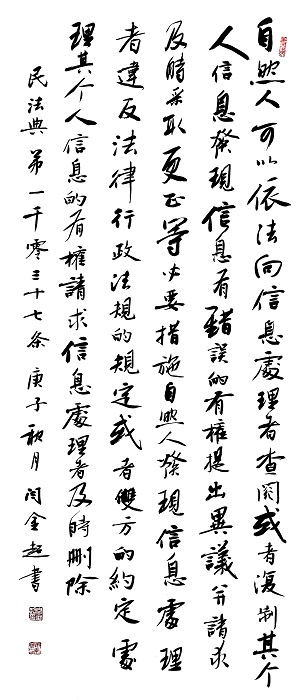 自然人可以依法向信息處理者查閱或者復制其个
人信息發現信息有錯誤的有權提出異議并請求
及時采取更正等必要措施自然人發現信息處理
者違反法律行政法規的規定或者雙方的約定處
理其个人信息的有權請求信息處理者及時刪除
民法典第一千零三十七条 庚子秋月 闫金超書